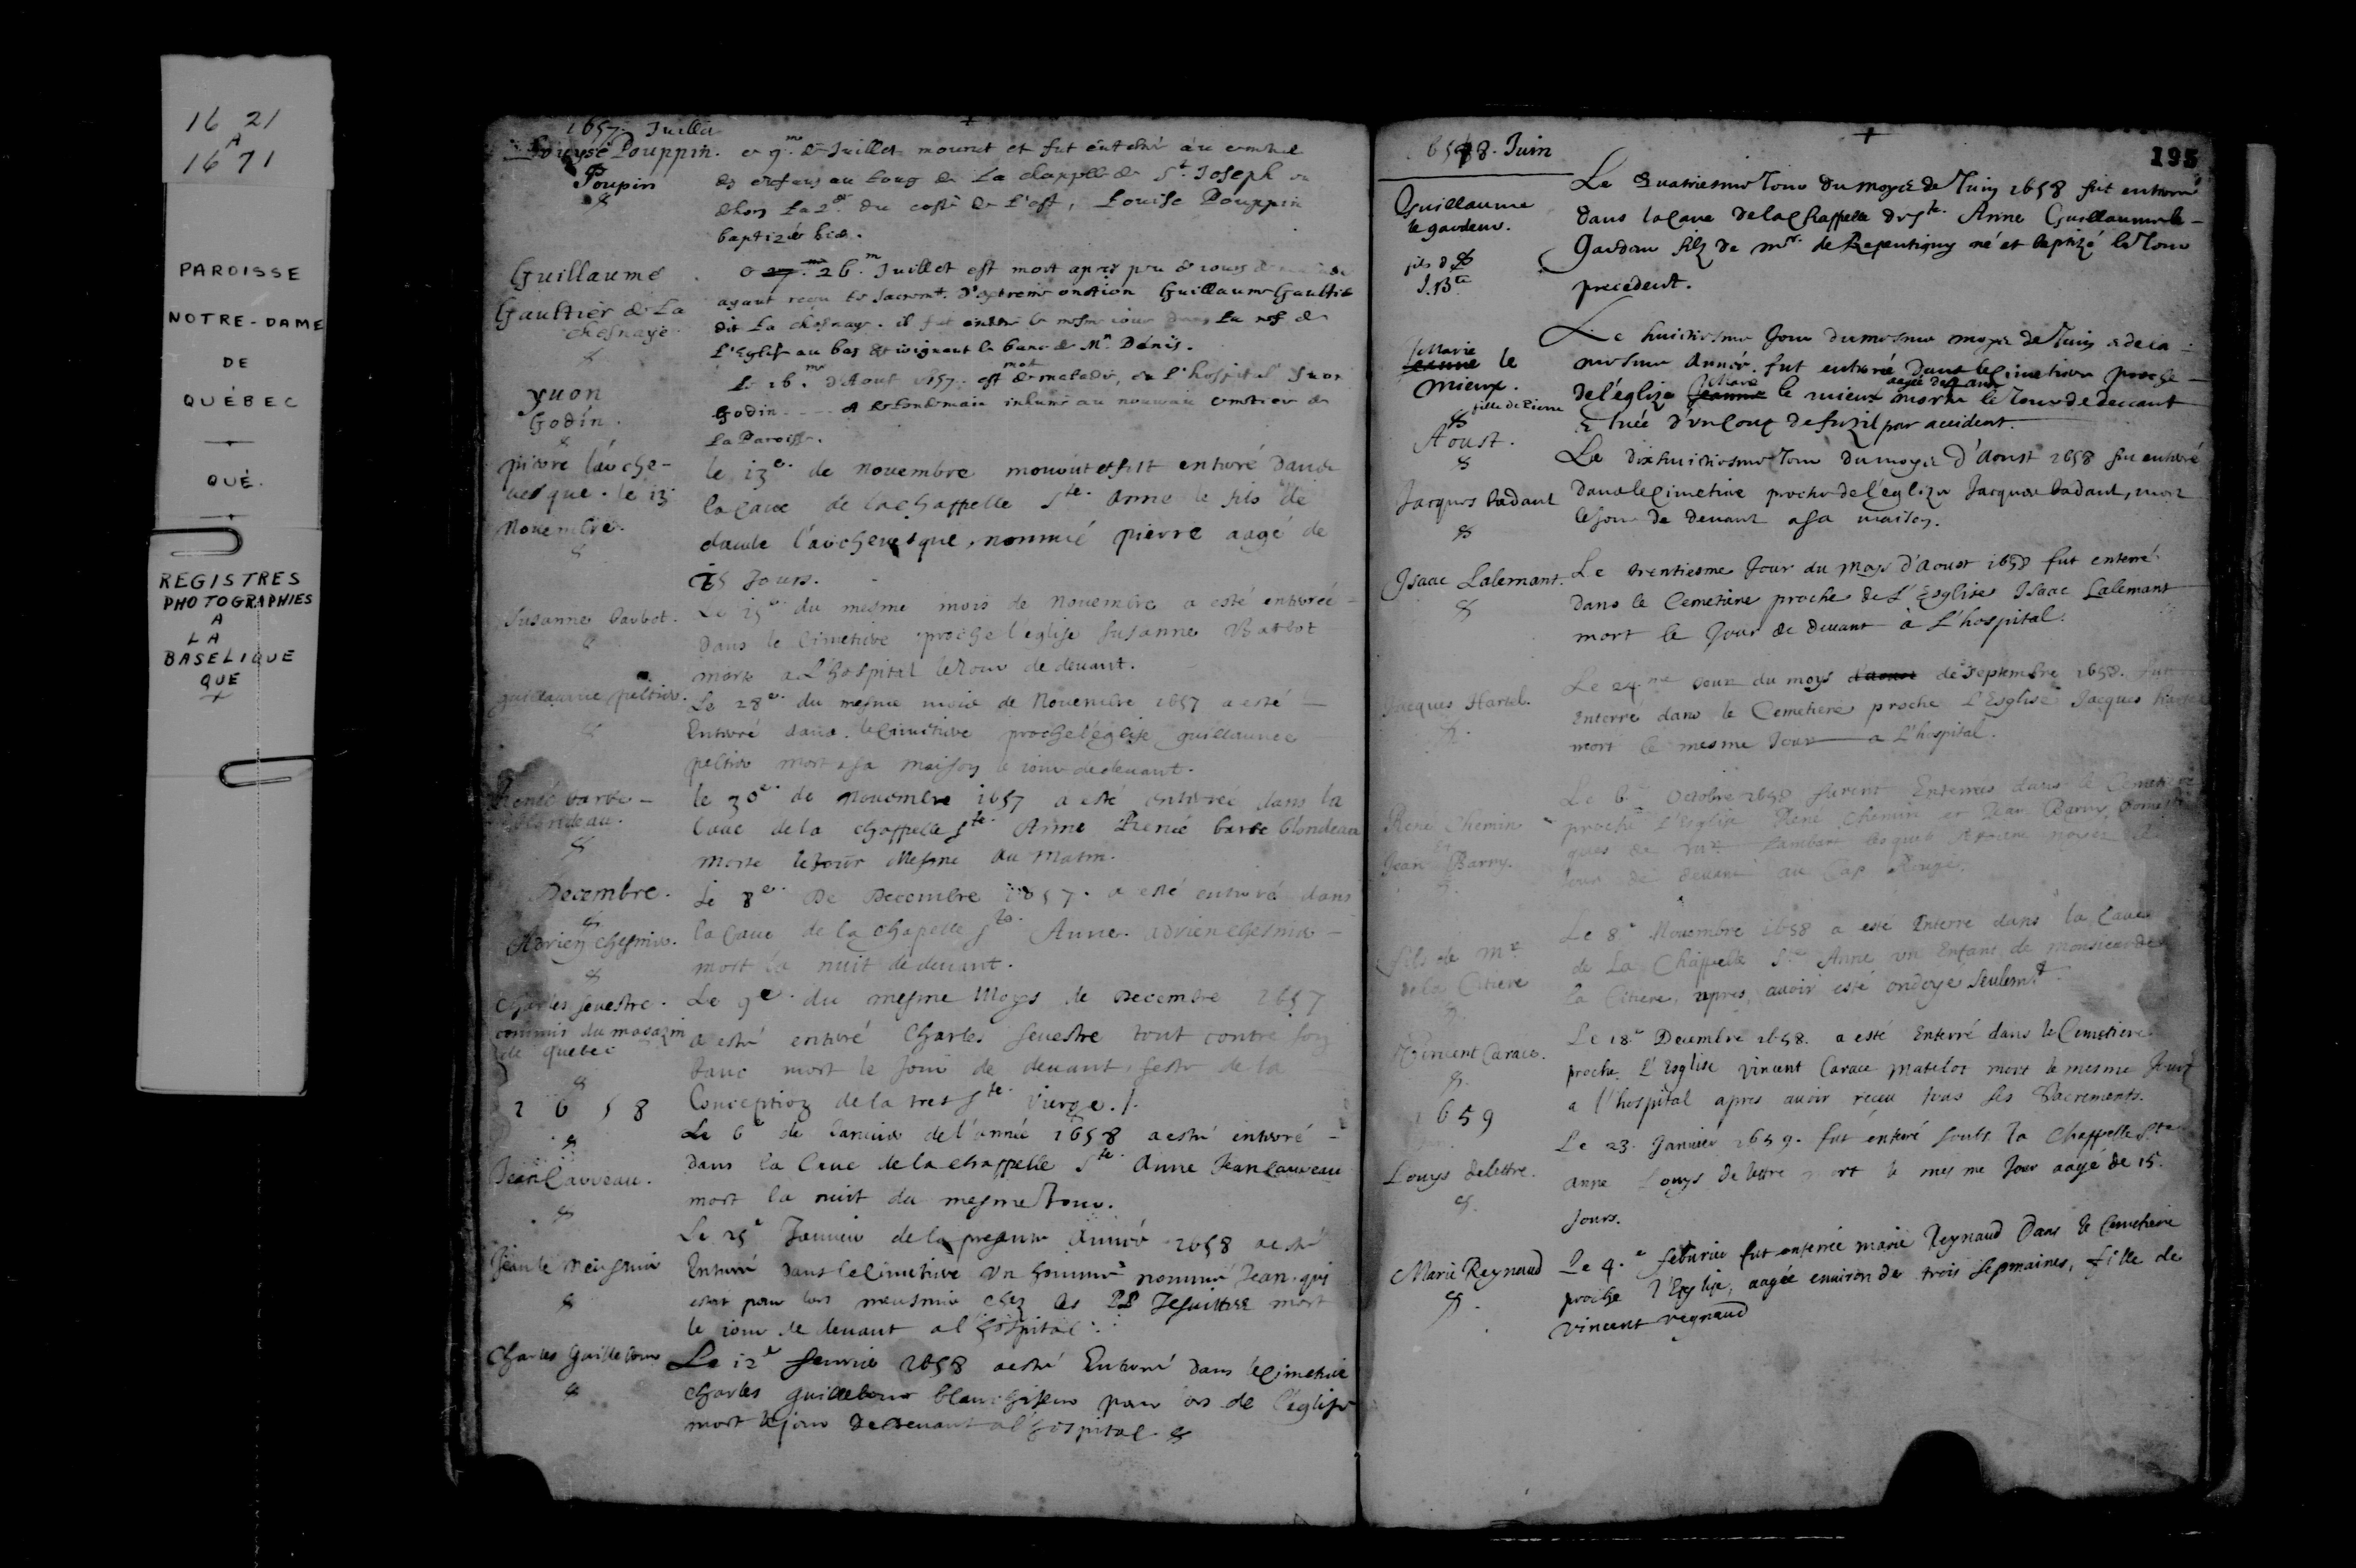 16 21
A
16 71
PAROISSE
NOTRE-DAME
DE
QUÉBEC
QUÉ.
REGISTRES
PHOTOGRAPHIES
A
LA
BASELIQUE
QUE
1657. Juillet
Louyse Pouppin.
Poupin
9.me de Juillet mourut et fut
des enfans au long de La chappelle de St. Joseph
dehors La 2 du costé de L'est, Louise Pouppin
baptizée
Guillaume
Gaultier de La
chesnaye
26.m Juillet est mort apres peu de iours de
ayant receu les sacremt. d'extreme onction Guillaume Gaultier
dit La chesnaye. il fut le mesme iour dans La nef de
L'Eglise au bas et ioignant le banc de Mr. Denis.
yuon
Godin.
Le 16.me d'Aout 1657. est mort de maladie, en l'hospital Iuon
Godin - - - - et le lendemain inhumé au nouveau cemetiere de
La Paroisse.
pierre l'arche-
uesque. le 13
Nouembre.
le 13e. de nouembre mourut et fut enterré Dans
la caue de la chappelle Ste. Anne le fils de
claude l'archeuesque, nommé pierre aagé de
15 Jours.
Susanne barbot.
Le 15e. du mesme mois de Nouembre a esté enterrée -
Dans le Cimetiere proche l'eglise Susanne Barbot
morte a L'hospital le Jour de deuant.
guillaume peltier.
Le 28e. du mesme mois de Nouembre 1657 a esté -
Enterré dans le Cimetiere proche l'eglise guillaume
peltier mort a sa maison le iour de deuant.
Renée barbe -
blondeau.
le 30e. de Nouembre 1657 a esté enterrée dans la
Caue de la chappelle Ste. Anne Renée barbe blondeau
morte le Jour mesme au Matin.
Decembre.
Adrien chesnier.
Le 8e. De Decembre 1657. a esté enterré dans
la Caue de la chapelle Ste. Anne. adrien chesnier -
mort la nuit de deuant.
Charles seuestre.
commis du magazin
de quebec
Le 9e. du mesme Moys de Decembre 1657
a esté enterré Charles seuestre tout contre son
banc mort le Jour de deuant, feste de la
Conception de la tres Ste. Vierge./.
1 6 5 8
Jean Cauueau.
Le 6e de Januier de l'année 1658 a esté enterré -
Dans la Caue de la chappelle Ste. Anne Jean cauueau
mort la nuit du mesme Jour.
Jean le meusnier
Le 25e Januier de la presente Année 1658 a esté
Enterré dans le Cimetiere Un homme nommé Jean qui
estoit pour lors meusnier chez les PP Jesuittes mort
le iour de deuant a l'hospital.
Charles Guillebour
Le 12e feurier 1658 a esté Enterré dans le Cimetiere
Charles guillebour blanchisseur pour lors de l'eglise
mort le jour de deuant a l'hospital.
195
1658. Juin
Guillaume
le gardeur.
fils de
J.Bte
Le quatriesme Jour du moys de Juin 1658 fut enterré
dans la Caue de la Chappelle de Ste. Anne Guillaume le -
Gardeur filz de mr. de Repentigny né et baptizé le Jour
precedent.
Marie
Jeanne le
mieux.
fille de Pierre
Le huictiesme Jour du mesme moys de Juin & de la
mesme Année. fut enterrée Dans le Cimetiere proche -
de l'eglize Jeanne Marie le mieux morte le Jour de deuant
& tuée d'un coup de fuzil par accident.
Aoust.
Jacques badaut
Le dixhuictiesme Jour du moys d'Aoust 1658 fut enterré
Dans le Cimetiere proche de l'eglize Jacques badaut, mort
le Jour de deuant a sa maison.
Isaac Lalemant.
Le trentiesme Jour du Mois d'Aoust 1658 fut enterré
Dans le Cemetiere proche de L'Esglise Isaac Lalemant
mort le Jour de deuant à L'hospital.
Jacques Hartel.
Le 24.me Jour du moys d'aoust de Septembre 1658. fut
Enterré dans le Cemetiere proche L'Esglise Jacques Hartel
mort le mesme Jour a L'hospital.
René Chemin
et
Jean Barry.
Le 6e Octobre 1658 furent Enterrés dans le Cemetiere
proche L'Esglise René Chemin et Jean Barry Domesti
ques de Lambert lesquels noyez le
Jour de deuant au Cap Rouge.
fils de Mr
de la Citiere
Le 8e Nouembre 1658 a esté Enterré dans la Caue
de La Chappelle Ste Anne un Enfant de monsieur de
la Citiere, apres auoir esté ondoyé seulemt.
Vincent Carace.
Le 18e Decembre 1658. a esté Enterré dans le Cimetiere
proche L'Esglise Vincent Carace matelot mort le mesme Jour
a l'hospital apres auoir receu tous ses Sacrements.
1659
Louys delettre.
Le 23. Januier 1659. fut enterré soubs la Chappelle Ste
Anne Louys de lettre mort le mesme Jour aagé de 15.
Jours.
Marie Reynaud
Le 4.e feburier fut enterrée marie Reynaud Dans le Cemetiere
proche l'Esglise, aagée enuiron de trois sepmaines, fille de
Vincent regnaud